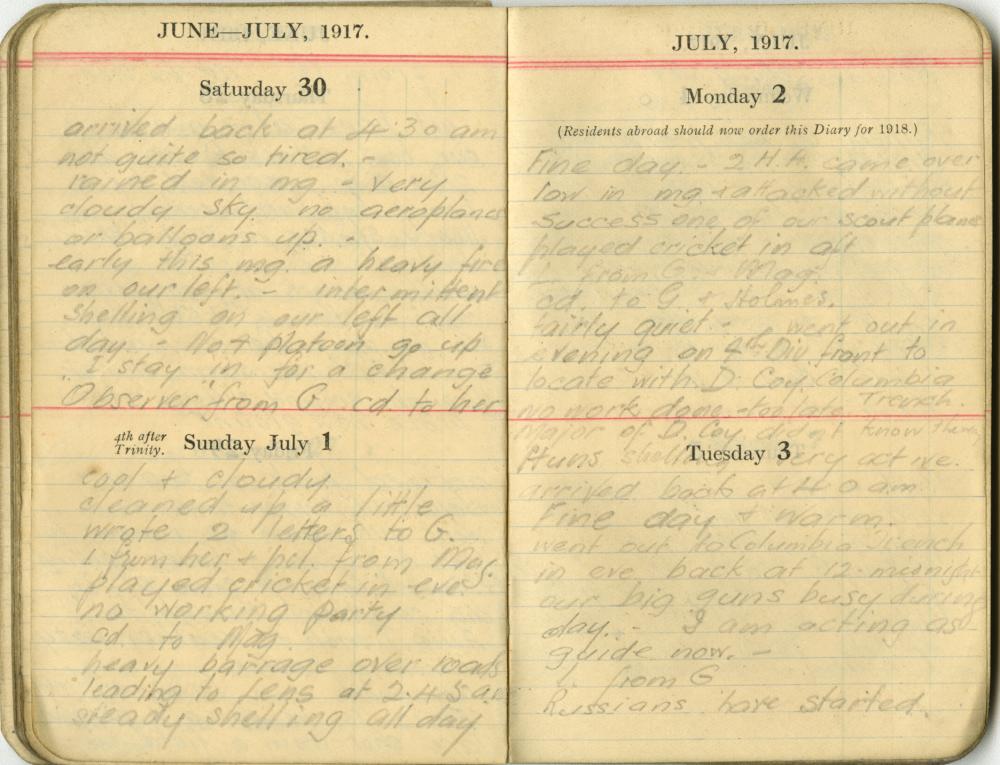 JUNE—JULY, 1917.
Saturday 30
arrived back at 4.30 am
not quite so tired. -
rained in mg. - very
cloudy sky. no aeroplanes
or balloons up. -
early this mg. a heavy fire
on our left. - intermittent
shelling on our left all
day. - No 4 platoon go up
I stay in for a change
"Observer" from G. cd to her
4th after
Trinity.
Sunday July 1
cool + cloudy
cleaned up a little
wrote 2 letters to G.
1 from her + pcl. from Mag.
played cricket in eve
no working party
cd. to Mag.
heavy barrage over roads
leading to Lens at 2.45 am
steady shelling all day
JULY, 1917.
Monday 2
(Residents abroad should now order this Diary for 1918.)
Fine day. - 2 H.A. came over
low in mg + attacked without
success one of our scout planes
played cricket in aft
from G. Mag.
cd. to G + Holmes.
fairly quiet - went out in
evening on 4th Div. front to
locate with D. Coy Columbia
Trench.
no work done - too late
Major of D. Coy didn't know
Huns shelling very active.
Tuesday 3
arrived back at am
Fine day + warm.
went out to Columbia Trench
in eve back at 12. midnight
our big guns busy during
day. - I am acting as
guide now. -
from G
Russians have started.